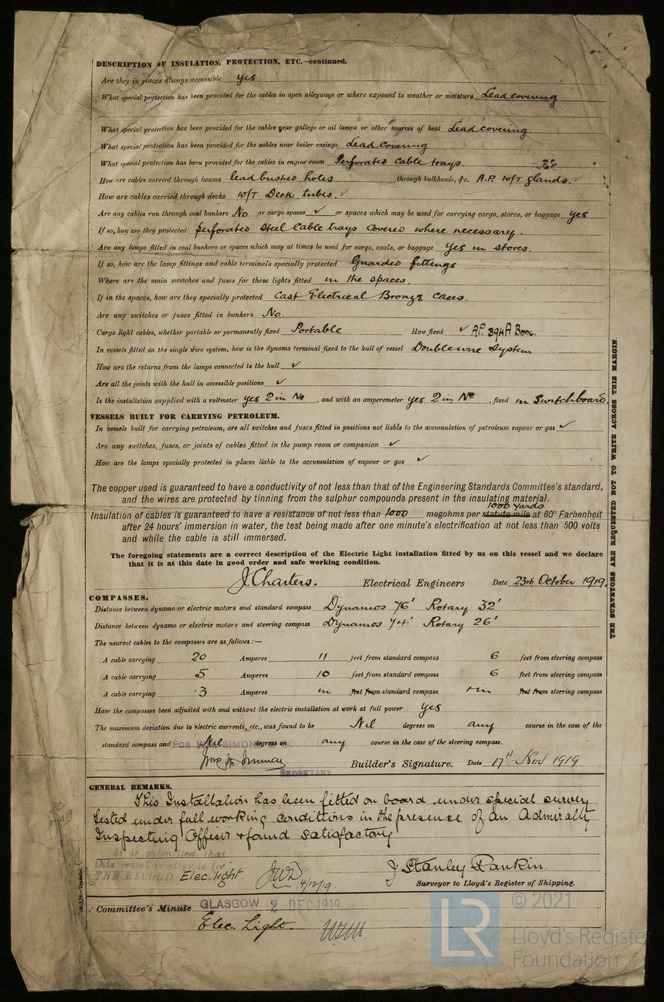 DESCRIPTION OF INSULATION, PROTECTION, ETC.—continued.
Are they in places always accessible yes
What special protection has been provided for the cables in open alleyways or where exposed to weather or moisture Lead covering
What special protection has been provided for the cables near galleys or oil lamps or other sources of heat Lead covering
What special protection has been provided for the cables near boiler casings Lead covering
What special protection has been provided for the cables in engine room Perforated cable trays.
How are cables carried through beams lead bushed holes through bulkheads, &c. A.P. W/T glands.
How are cables carried through decks W/T Deck tubes. ✓
Are any cables run through coal bunkers No or cargo spaces ✓ or spaces which may be used for carrying cargo, stores, or baggage yes
If so, how are they protected perforated steel cable trays covered where necessary.
Are any lamps fitted in coal bunkers or spaces which may at times be used for cargo, coals, or baggage yes in stores.
If so, how are the lamp fittings and cable terminals specially protected Guarded fittings
Where are the main switches and fuses for these lights fitted in the spaces.
If in the spaces, how are they specially protected Cast Electrical Bronze cases.
Are any switches or fuses fitted in bunkers No.
Cargo light cables, whether portable or permanently fixed Portable How fixed ✓ A.P. 394A Box.
In vessels fitted on the single wire system, how is the dynamo terminal fixed to the hull of vessel Double wire System
How are the returns from the lamps connected to the hull ✓
Are all the joints with the hull in accessible positions ✓
Is the installation supplied with a voltmeter yes 2 in No , and with an amperemeter yes 2 in No , fixed on Switchboard.
VESSELS BUILT FOR CARRYING PETROLEUM.
In vessels built for carrying petroleum, are all switches and fuses fitted in positions not liable to the accumulation of petroleum vapour or gas ✓
Are any switches, fuses, or joints of cables fitted in the pump room or companion ✓
How are the lamps specially protected in places liable to the accumulation of vapour or gas ✓
The copper used is guaranteed to have a conductivity of not less than that of the Engineering Standards Committee's standard,
and the wires are protected by tinning from the sulphur compounds present in the insulating material.
1000 yards
Insulation of cables is guaranteed to have a resistance of not less than 1000 megohms per statute mile at 60° Farhenheit
after 24 hours' immersion in water, the test being made after one minute's electrification at not less than 500 volts
and while the cable is still immersed.
The foregoing statements are a correct description of the Electric Light installation fitted by us on this vessel and we declare
that it is at this date in good order and safe working condition.
J. Charters. Electrical Engineers Date 23rd October 1919.
COMPASSES.
Distance between dynamo or electric motors and standard compass Dynamos 76' Rotary 32'
Distance between dynamo or electric motors and steering compass Dynamos 74' Rotary 26'
The nearest cables to the compasses are as follows:—
A cable carrying 20 Amperes 11 feet from standard compass 6 feet from steering compass
A cable carrying 5 Amperes 10 feet from standard compass 6 feet from steering compass
A cable carrying .3 Amperes in feet from standard compass in feet from steering compass
Have the compasses been adjusted with and without the electric installation at work at full power yes
The maximum deviation due to electric currents, etc., was found to be Nil degrees on any course in the case of the
standard compass and Nil degrees on any course in the case of the steering compass.
SECRETARY
Builder's Signature. Date 17th Nov 1919
GENERAL REMARKS.
This Installation has been fitted on board under special survey
tested under full working conditions in the presence of an Admiralty
Inspecting Officer & found satisfactory
It is submitted that
this vessel is eligible for
THE RECORD Elec. light. JWD 4/12/19.
J Stanley Rankin.
Surveyor to Lloyd's Register of Shipping.
Committee's Minute GLASGOW 2 DEC 1919
Elec. Light.
THE SURVEYORS ARE REQUESTED NOT TO WRITE ACROSS THIS MARGIN.
LR
© 2021
Lloyd's Register
Foundation